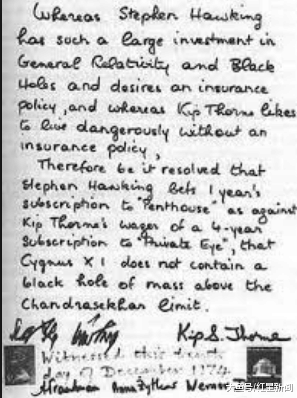 Whereas Stephen Hawking
has such a large investment in
General Relativity and Black
Holes and desires an insurance
policy, and whereas Kip Thorne likes
to live dangerously without an
insurance policy,
Therefore be it resolved that
Stephen Hawking bets 1 year's
subscription to "Penthouse" as against
Kip Thorne's wager of a 4-year
subscription to "Private Eye", that
Cygnus X 1 does not contain a
black hole of mass above the
Chandrasekhar limit.
Kip S. Thorne
Witnessed this tenth
day of December 1974
Anna Werner